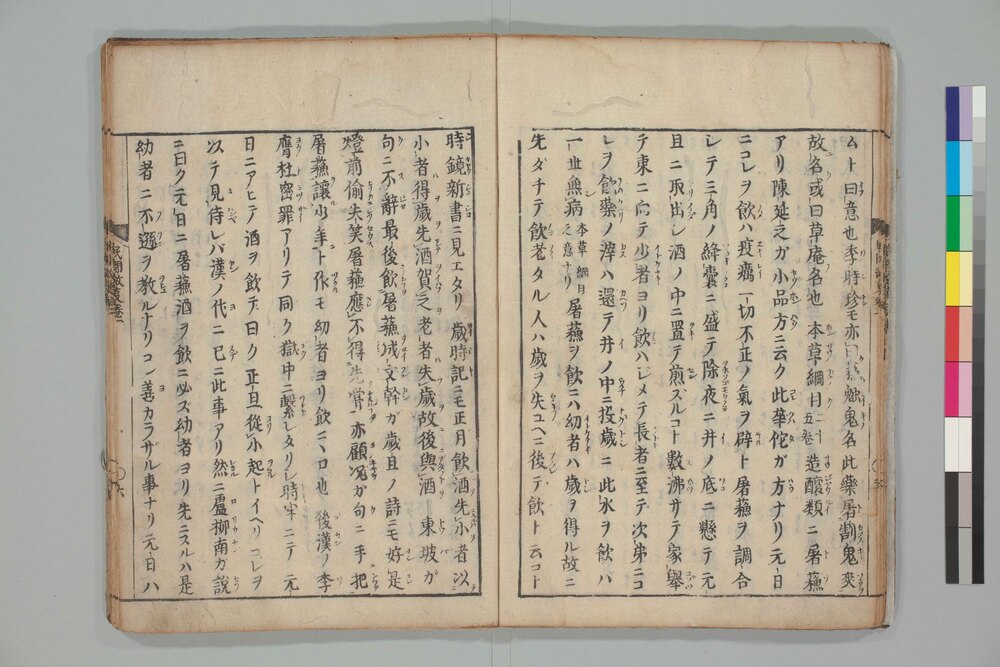 ムト曰意也李時珍モ亦曰蘇魃鬼名此藥屠割鬼爽
故名或曰草庵名也 本草綱目二十五卷造釀類ニ屠蘇
アリ陳延之ガ小品方ニ云ク此華佗ガ方ナリ元日
ニコレヲ飲ハ疫癘一切不正ノ氣ヲ辟ト屠蘇ヲ調合
シテ三角ノ絳囊ニ盛テ除夜ニ井ノ底ニ懸テ元
且ニ取出シ酒ノ中ニ置テ煎ズルコト數沸サテ家擧
テ東ニ向テ少者ヨリ飲ハジメテ長者ニ至テ次第ニコ
レヲ飲藥ノ滓ハ還テ井ノ中ニ投歳ニ此水ヲ飲バ
一世無病本草綱目之意ナリ屠蘇ヲ飲ニハ幼者ハ歳ヲ得ル故ニ
先ダチテ飲老タル人ハ歳ヲ失ユヘニ後テ飲ト云コト
時鏡新書ニ見エタリ 歳時記ニモ正月飲酒先小者以
小者得歳先酒賀之老者失歳故後與酒 東坡ガ
句ニ不辭最後飲屠蘇成文幹ガ歳且ノ詩ニモ好是
燈前偷失笑屠蘇應不得先嘗亦顧况ガ句ニ手把
屠蘇讓少年ト作モ幼者ヨリ飲コヽロ也 後漢ノ李
膺杜密罪アリテ同ク獄中ニ繫レタリシ時牢ニテ元
日ニアヒテ酒ヲ飲テ曰ク正旦從小起トイヘリコレヲ
以テ見侍レバ漢ノ代ニ已ニ此事アリ然ニ盧柳南ガ說
ニ曰ク元日ニ屠蘇酒ヲ飲ニ必ズ幼者ヨリ先ニスルハ是
幼者ニ不遜ヲ教ルナリコレ善カラザル事ナリ元日ハ